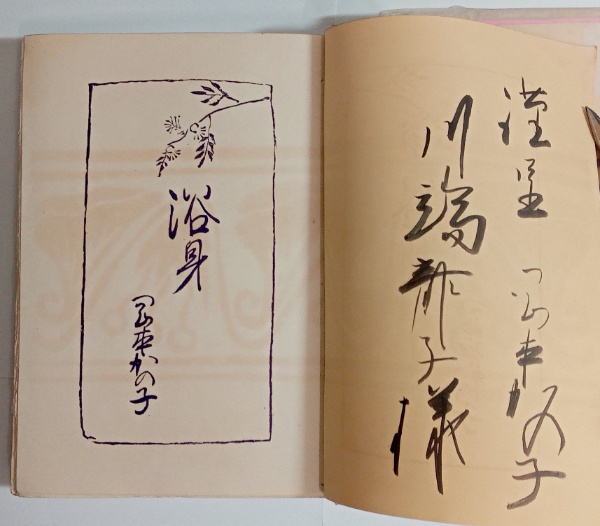 謹呈 岡本かの子
川端龍子様
浴身
岡本かの子